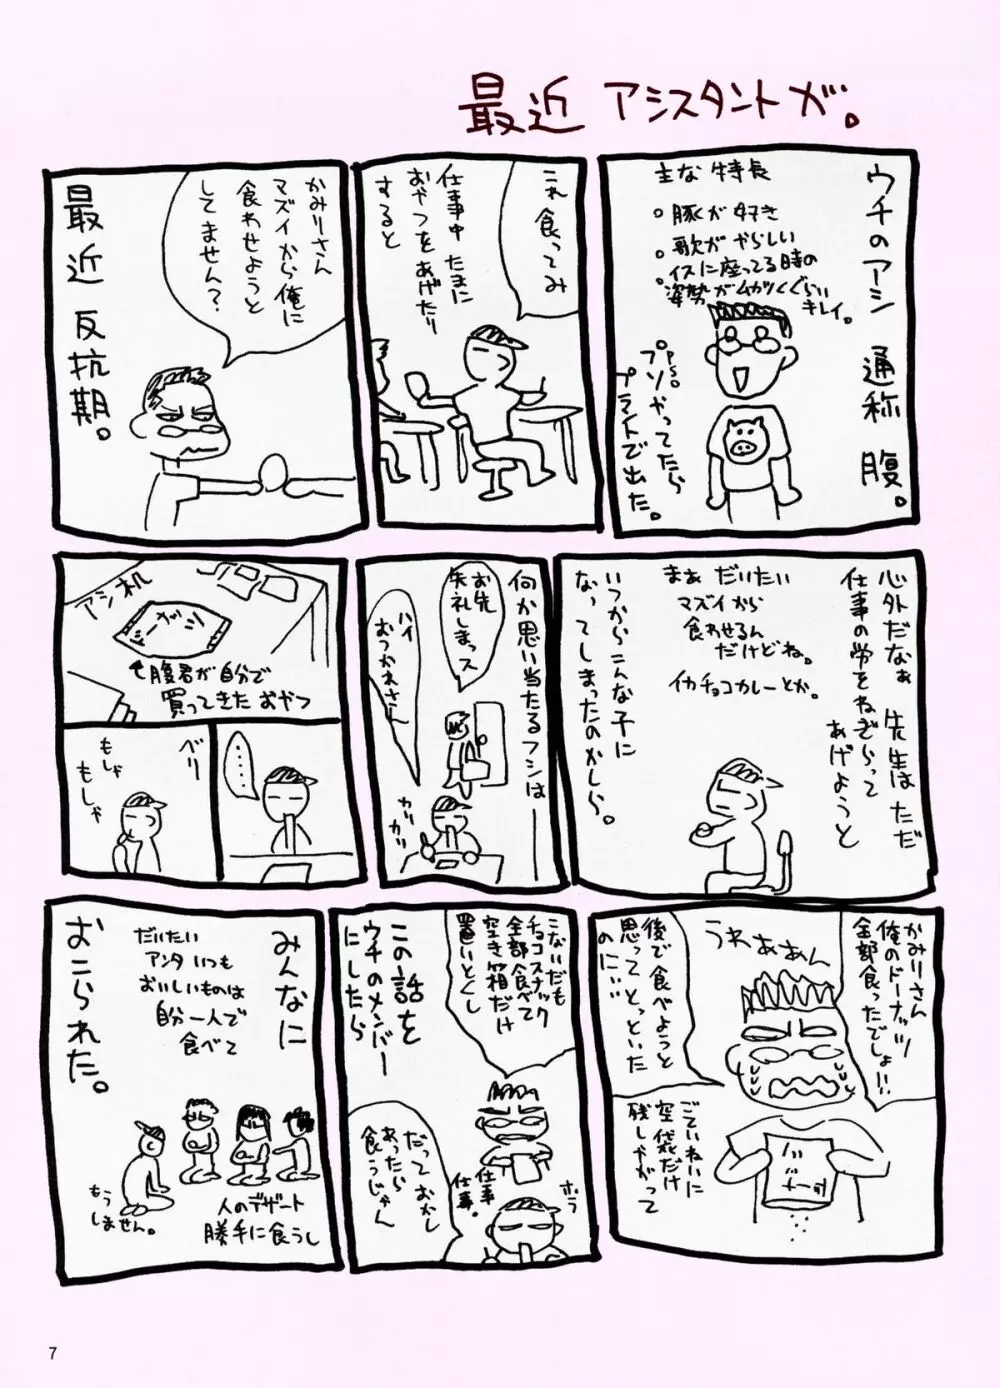 最近 アシスタントが。
ウチのアシ 通称 腹。
主な特長
。豚が好き
。歌がやらしい
。イスに座ってる時の
姿勢がムカツくぐらい
キレイ。
プソやってたら
プラントで出た。
これ食ってみ
仕事中たまに
おやつをあげたり
すると
かみりさん
マズイから俺に
食わせようと
してません?
最近 反抗期。
心外だなぁ 先生はただ
仕事の労をねぎらって
あげようと
まぁ だいたい
マズイから
食わせるん
だけどね。
イカチョコカレーとか。
いつからこんな子に
なってしまったのかしら。
何か思い当たるフシは
お先
失礼しまっス
ハイ
おつかれさまー
カリ
カリ
アシ机
腹君が自分で
買ってきたおやつ
……
ベリ
もしゃ
もしゃ
かみりさん
俺のドーナッツ
全部食ったでしょ!!
うわあぁん
後で食べようと
思ってとっといた
のに…
ごていねいに
空袋だけ
残しやがって
こないだも
チョコスナック
全部食べて
空き箱だけ
置いとくし
この話を
ウチのメンバー
にしたら
ホラ
仕事
仕事。
だっておかし
あったら
食うじゃん
みんなに
おこられた。
だいたい
アンタいつも
おいしいものは
自分一人で
食べて
人のデザート
勝手に食うし
もう
しません。
7